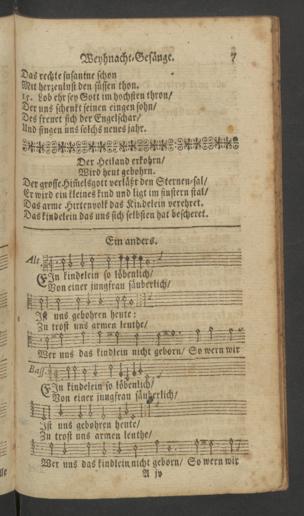 Weyhnacht-Gesänge. 7
Das rechte susanine schon
Mit herzenlust den süssen thon.
15. Lob ehr sey Gott im hochsten thron/
Der uns schenkt seinen eingen sohn/
Des freuet sich der Engelschar/
Und singen uns solchs neues jahr.
Der Heiland erkohrn/
Wird heut gebohrn.
Der grosse Him̃elsgott verläßt den Sternen-sal/
Er wird ein kleines kind und ligt im finstern stal/
Das arme Hirtenvolk das Kindelein verehret.
Das kindelein das uns sich selbsten hat bescheret.
Ein anders.
Alt.
EIn kindelein so löbenlich/
Von einer jungfrau säuberlich/
Ist uns gebohren heute:
Zu trost uns armen leuthe/
Wer uns das kindlein nicht geborn/ So wern wir
Bass.
EIn kindelein so löbenlich/
Von einer jungfrau säuberlich/
Ist uns gebohren heute/
Zu trost uns armen leuthe/
Wer uns das kindlein nicht geborn/ So wern wir
A iv